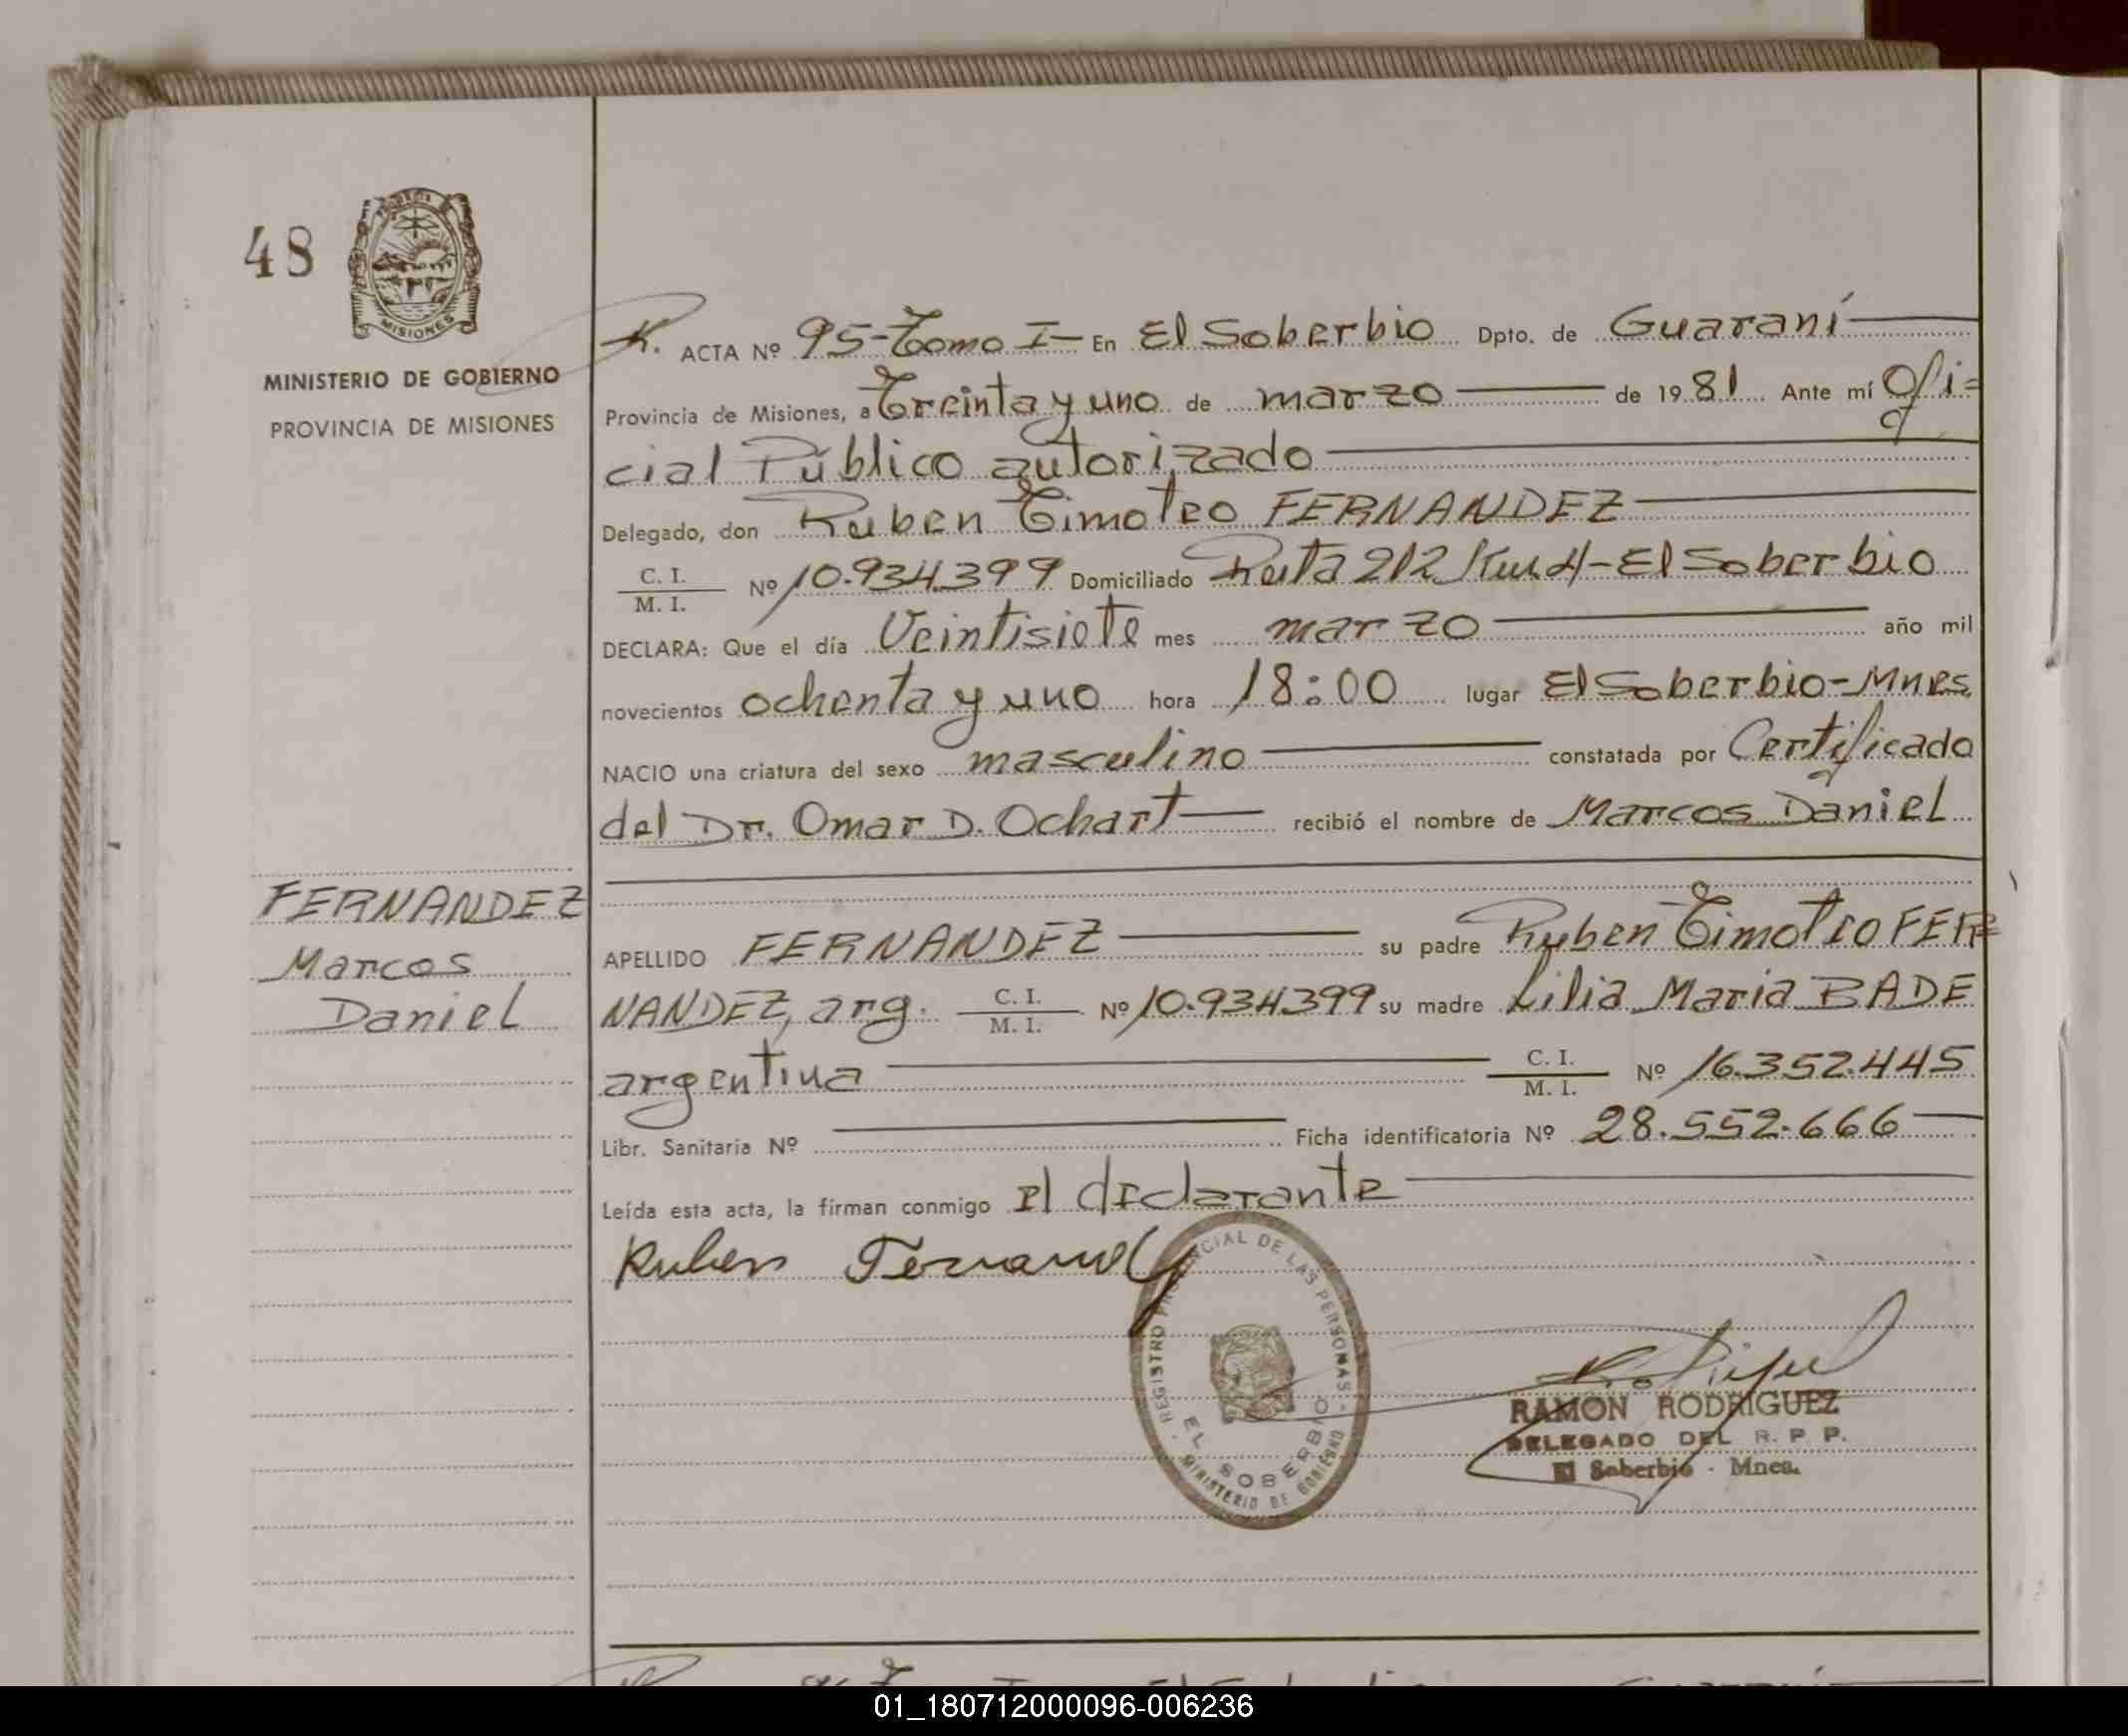 48
MISIONES
MINISTERIO DE GOBIERNO
PROVINCIA DE MISIONES
R. ACTA Nº 95-Tomo I- En El Soberbio Dpto. de Guaraní
Provincia de Misiones, a Treinta y uno de marzo de 1981 Ante mí Ofi=
cial Público autorizado
Delegado, don Ruben Timoteo FERNANDEZ
C. I.
M. I. Nº 10.934.399 Domiciliado Ruta 212 Km 4-El Soberbio
DECLARA: Que el día Veintisiete mes marzo año mil
novecientos ochenta y uno hora 18:00 lugar El Soberbio-Mnes.
NACIO una criatura del sexo masculino constatada por Certificado
del Dr. Omar D. Ochart recibió el nombre de Marcos Daniel
FERNANDEZ
Marcos
Daniel
APELLIDO FERNANDEZ su padre Ruben Timoteo FER=
NANDEZ, arg. C. I.
M. I. Nº 10.934.399 su madre Lilia Maria BADE
argentina C. I.
M. I. Nº 16.352.445
Libr. Sanitaria Nº Ficha identificatoria Nº 28.552.666
Leída esta acta, la firman conmigo el declarante
Ruben Fernandez
REGISTRO PROVINCIAL DE LAS PERSONAS
EL SOBERBIO
MINISTERIO DE GOBIERNO
RAMON RODRIGUEZ
DELEGADO DEL R. P. P.
El Soberbio - Mnes.
01_180712000096-006236